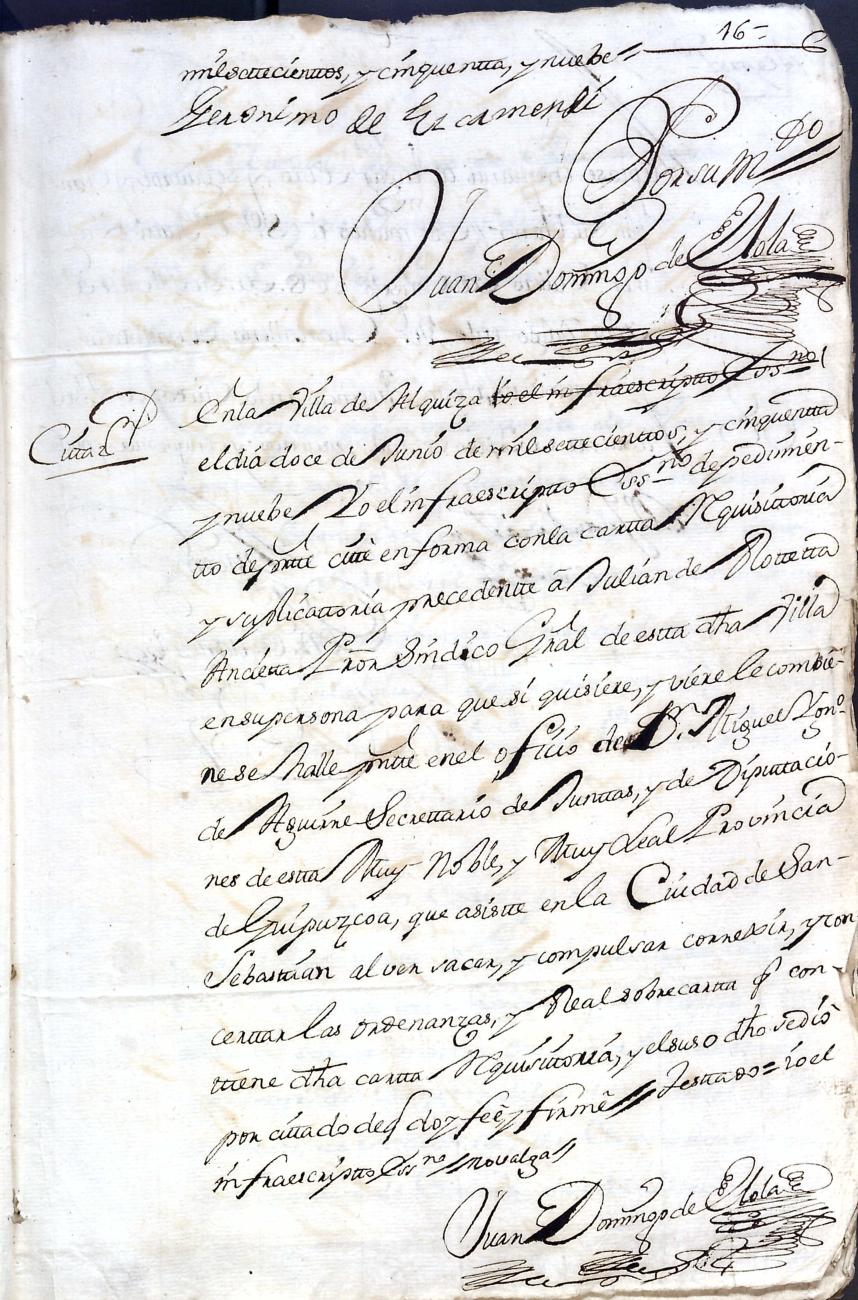 16=
milsettecienttos, y cinquentta, y nuebe=
Geronimo de Ezcamendi
Porsu Mdo
Juan Domingo de Elola
Cittaon
Enla Villa de Alquiza Yo el infraescriptto Essno
el dia doce de Junio de milsettecienttos, y cinquentta
y nuebe Yo el infraescriptto Essno depedimen-
tto de pntte citte en forma conla cartta Rquisittoria
y suplicattoria precedentte â Julian de Rottetta
Ancietta Pror Sindico Gral de estta dha Villa
ensupersona para que si quisiere, y viere le combie-
ne se halle pntte enel oficio de Dn Miguel Ygno
de Aguirre Secrettario de Junttas, y de Diputtacio-
nes de estta Muy Noble, y Muy Leal Provincia
de Guipuzcoa, que asistte en la Ciudad de San-
Sebastian al ver sacar, y compulsar correxir, y con
certtar las ordenanzas, y Real sobrecartta q con-
ttiene dha cartta Rquisittoria, y elsuso dho sedió
por cittado deq doy feê, y firmê= Testtado=Yo el
infraescriptto Essno novalga
Juan Domingo de Elola